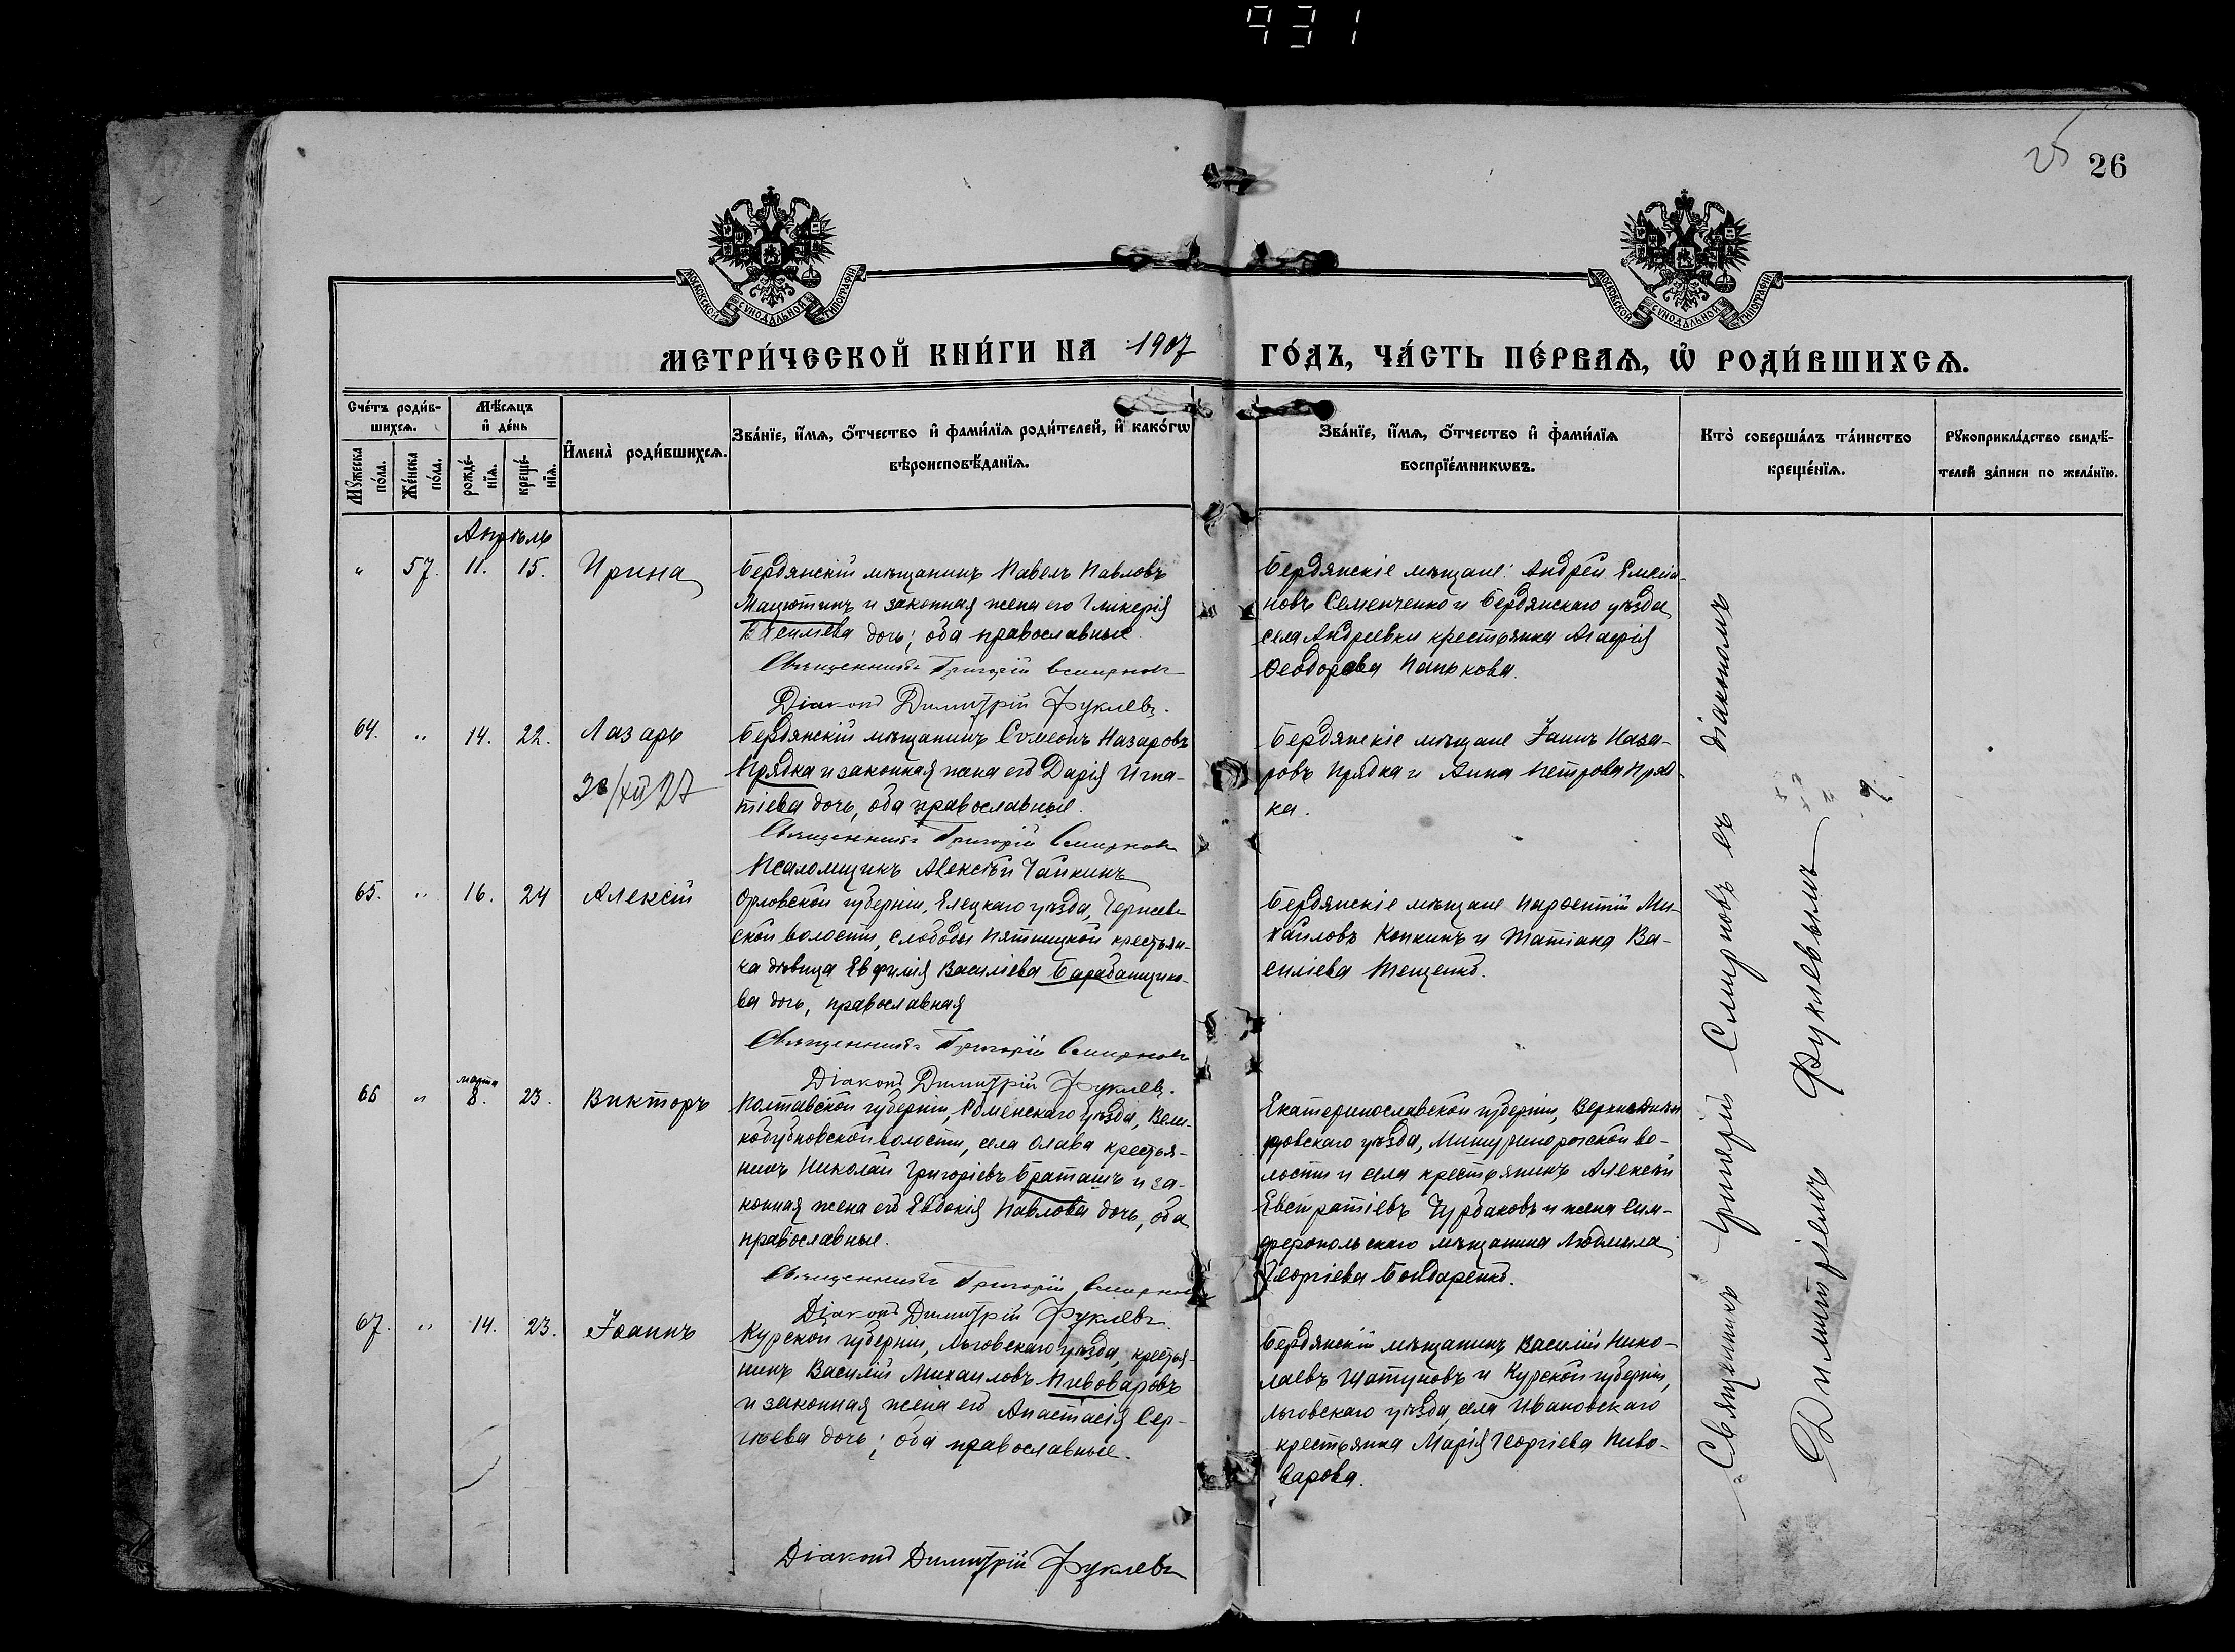 931
25 26
МОСКОВСКОЙ СУНОДАЛЬНОЙ ТИПОГРАФІИ
МОСКОВСКОЙ СУНОДАЛЬНОЙ ТИПОГРАФІИ
МЕТРИ́ЧЕСКОЙ КНИ́ГИ НА 1907 ГО́ДЪ, ЧА́СТЬ ПЕ́РВАѦ, Ѡ҆ РОДИ́ВШИХСѦ.
Сче́тъ роди́в-
шихсѧ.
Мꙋ́жеска
по́ла.
Же́нска
по́ла.
Мѣ́сѧцъ
и҆ де́нь
рожде́-
нїѧ.
креще́-
нїѧ.
И҆мена̀ роди́вшихсѧ.
Зва́нїе, и҆́мѧ, ѻ҆́тчество и҆ фами́лїѧ роди́телей, и҆ како́гѡ
вѣроисповѣ́данїѧ.
Зва́нїе, и҆́мѧ, ѻ҆́тчество и҆ фами́лїѧ
воспрїе́мникѡвъ.
Кто̀ соверша́лъ та́инство
креще́нїѧ.
Рꙋкоприкла́дство свидѣ́-
телей за́писи по жела́нїю.
Апрѣль
" 57. 11. 15. Ирина
Бердянскій мѣщанинъ Павелъ Павловъ
Мацютинъ и законная жена его Гликерія
Василіева дочь; оба православные.
Священникъ Григорій Смирновъ
Діаконъ Димитрій Фуклевъ.
Бердянскіе мѣщане: Андрей Емелiа-
новъ Семенченко и Бердянскаго уѣзда
села Андреевки крестьянка Агафія
Феодорова Панькова.
64. " 14. 22. Лазарь
Бердянскій мѣщанинъ Сѵмеонъ Назаровъ
30/XII 27
Прядка и законная жена его Дарія Игна-
тіева дочь, оба православные.
Священникъ Григорій Смирновъ
Псаломщикъ Алексѣй Чайкинъ
Бердянскіе мѣщане Іаннъ Наза-
ровъ Прядка и Анна Петрова Пряд-
ка.
65. " 16. 24 Алексій
Орловской губерніи, Елецкаго уѣзда,
ской волости, слободы Пятницкой крестьян-
ка дѣвица Евфимія Василіева Барабанщико-
ва дочь, православная
Священникъ Григорій Смирновъ
Діаконъ Димитрій Фуклевъ.
Бердянскіе мѣщане Парфентій Ми-
хайловъ Копкинъ и Татіана Ва-
силіева Тещенко.
марта
66 " 8. 23. Викторъ
Полтавской губерніи, Роменскаго уѣзда, Вели-
кобубновской волости, села Олава крестья-
нинъ Николай Григоріевъ Браташъ и за-
конная жена его Евдокія Павлова дочь, оба
православные.
Священникъ Григорій Смирновъ
Діаконъ Димитрій Фуклевъ.
Екатеринославской губерніи,
ровскаго уѣзда, Мишуринорогской во-
лости и села крестьянинъ Алексѣй
Евстратіевъ Чурбаковъ и жена Сим-
феропольскаго мѣщанина Людмила
Георгіева Бондаренко.
67. " 14. 23. Іоаннъ
Курской губерніи, Льговскаго уѣзда, крестья-
нинъ Василій Михаиловъ Пивоваровъ
и законная жена его Анастасія Сер-
гіева дочь; оба православные.
Діаконъ Димитрій Фуклевъ
Бердянскій мѣщанинъ Василій Нико-
лаевъ Шатуновъ и Курской губерніи,
Льговскаго уѣзда, села Ивановскаго
крестьянка Марія Георгіева Пиво-
варова.
Священникъ Григорій Смирновъ съ діакономъ
Димитріемъ Фуклевымъ